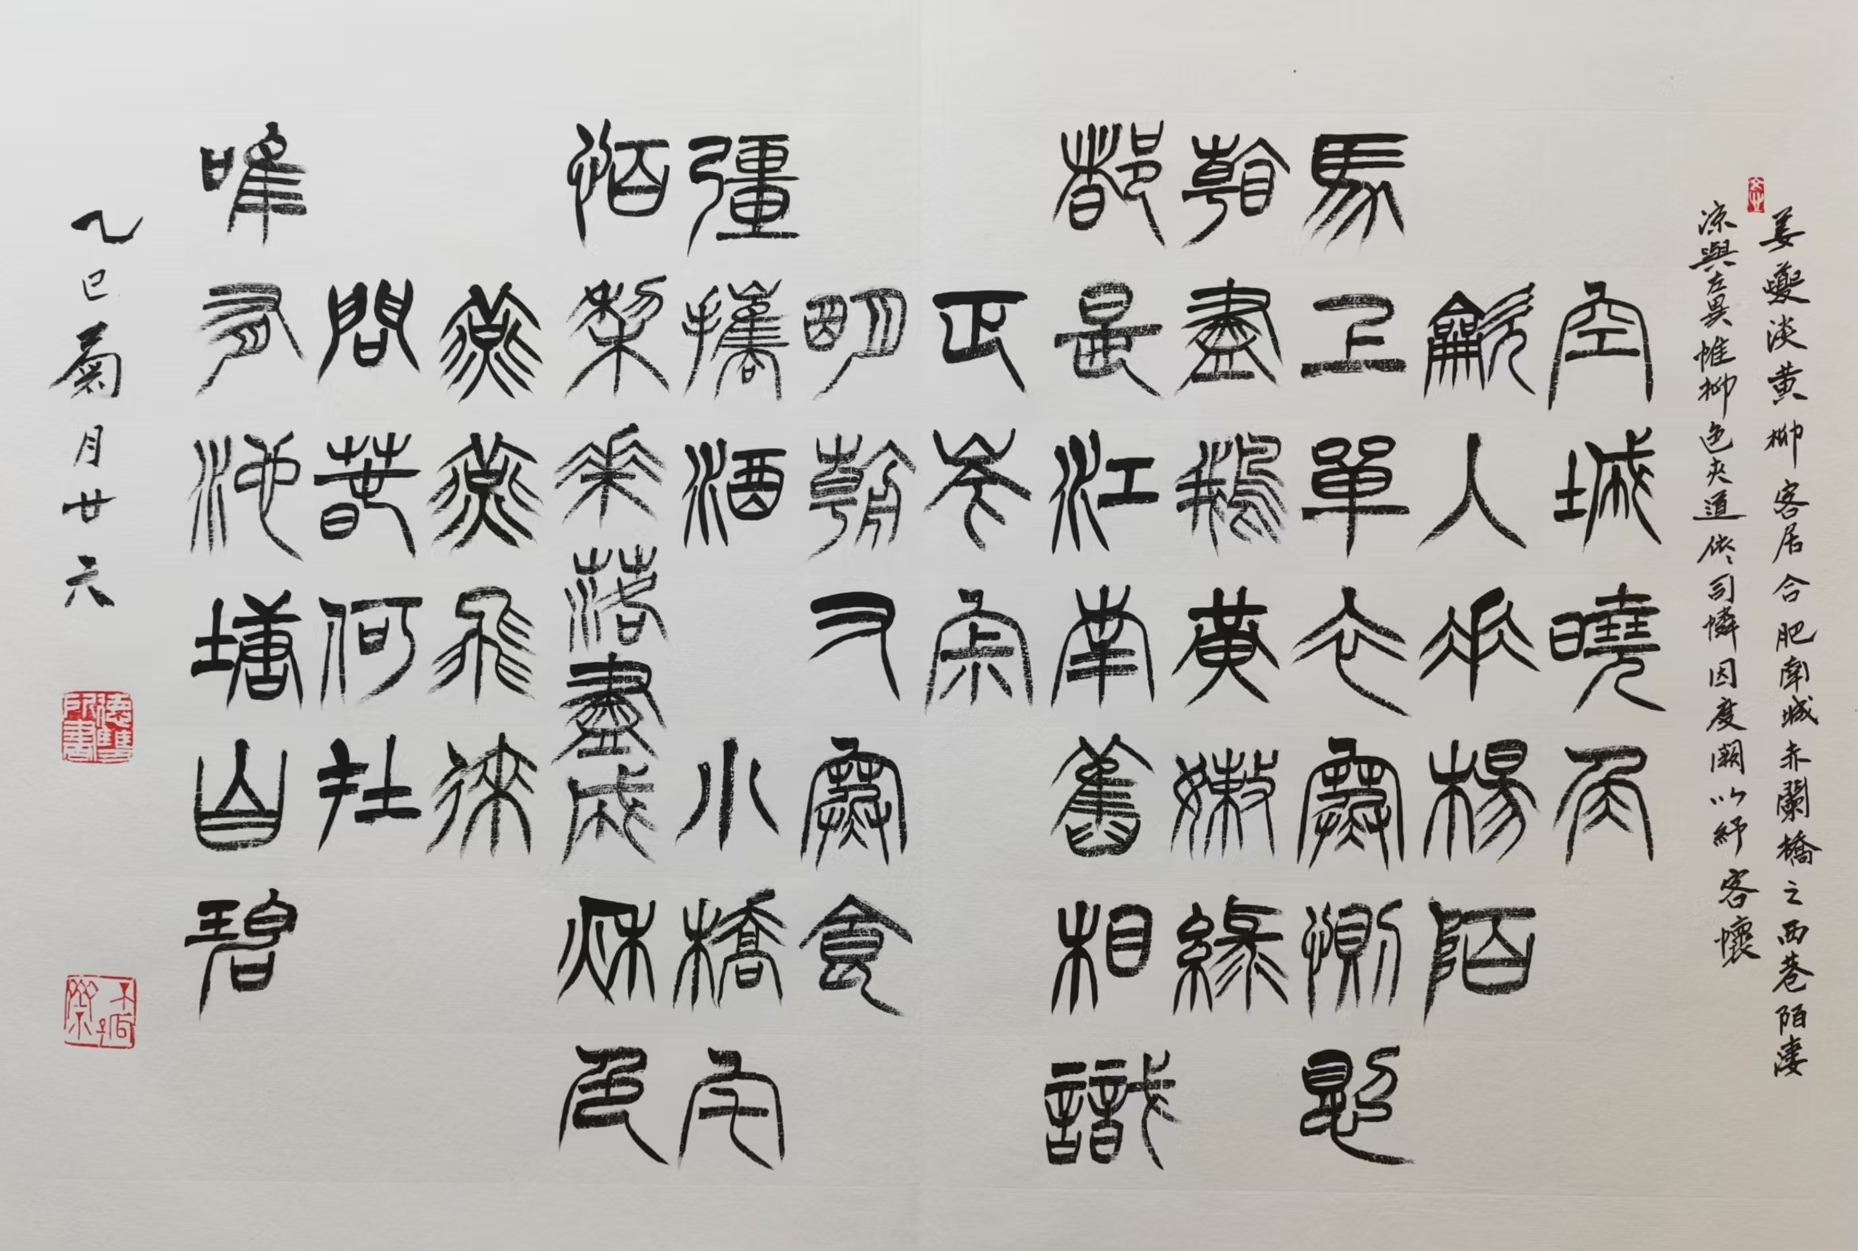 姜夔淡黄柳 客居合肥南城赤闌橋之西巷陌淒
涼與左異惟柳色夾道依可憐因度闋以紓客懷
空城曉角
龡入垂楊陌
馬上單衣寒惻惻
看盡鵝黃嫩綠
都是江南舊相識
正岑寂
明朝又寒食
彊攜酒 小橋宅
怕梨花落盡成秋色
燕燕飛來
問春何在
唯有池塘自碧
乙巳菊月廿六